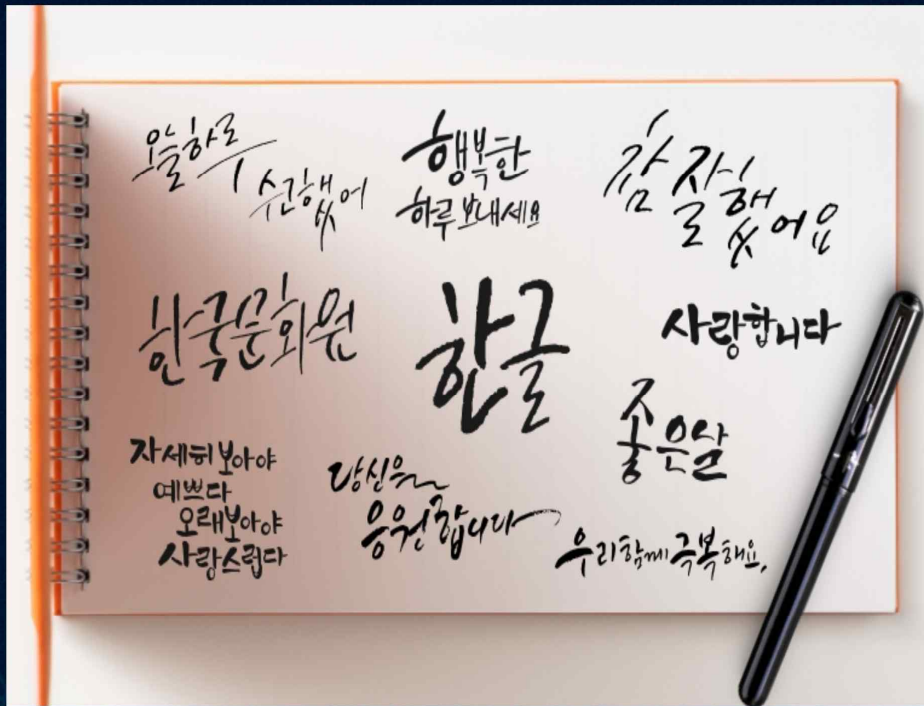 오늘하루
수고했어
행복한
하루 보내세요
참 잘했어요
한국문화원
한글
사랑합니다
좋은날
자세히 보아야
예쁘다
오래보아야
사랑스럽다
당신을
응원합니다
우리함께 극복해요.